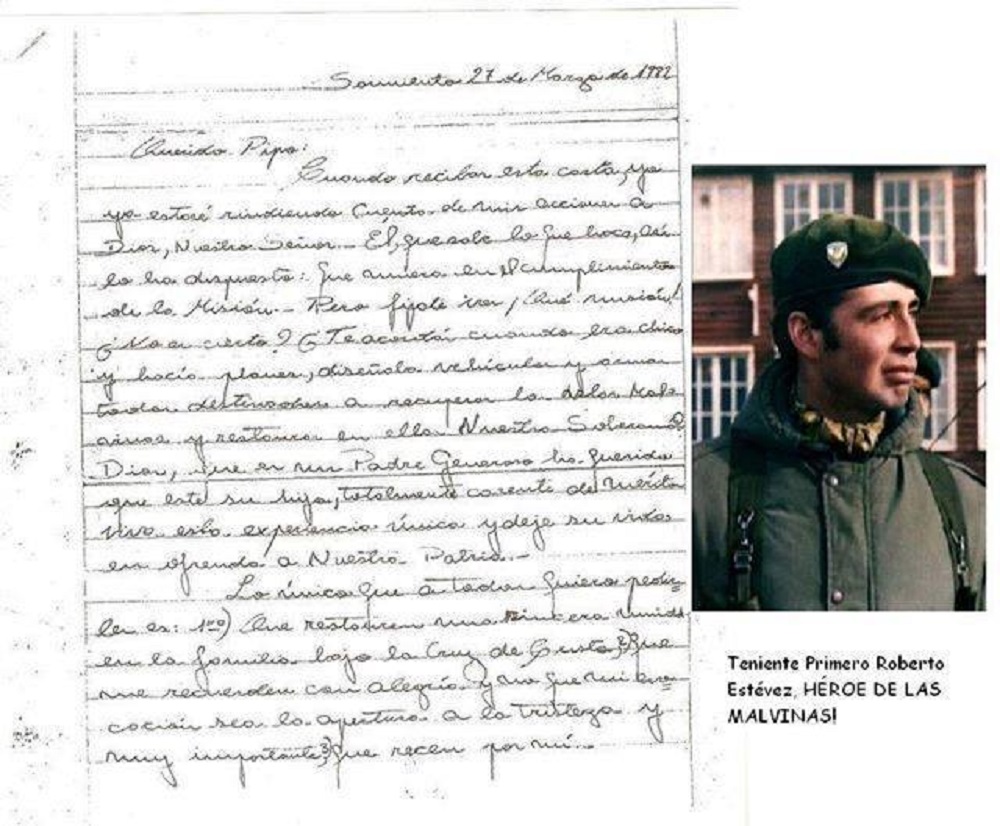 Sarmiento 27 de Marzo de 1982
Querido Papa:
Cuando recibas esta carta, ya
yo estaré rindiendo Cuenta de mis acciones a
Dios, Nuestro Señor.- El, que sabe lo que hace, así
lo ha dispuesto: que muera en el cumplimiento
de la Misión.- Pero fijate vos ¡Qué misión!
¿No es cierto? ¿Te acordás cuando era chico
y hacía planes, diseñaba vehículos y armas
todos destinados a recuperar las Islas Mal-
vinas y restaurar en ellas Nuestra Soberanía?
Dios, que es un Padre Generoso ha querido
que este su hijo, totalmente carente de méritos
viva esta experiencia única y deje su vida
en ofrenda a Nuestra Patria.-
Lo único que a todos quiero pedir=
les es: 1ro) Que restauren una sincera unidad
en la familia bajo la Cruz de Cristo. 2) Que
me recuerden con alegría y no que mi evo=
cación sea la apertura a la tristeza y
muy importante, 3) Que recen por mí.-
Teniente Primero Roberto
Estévez, HÉROE DE LAS
MALVINAS!